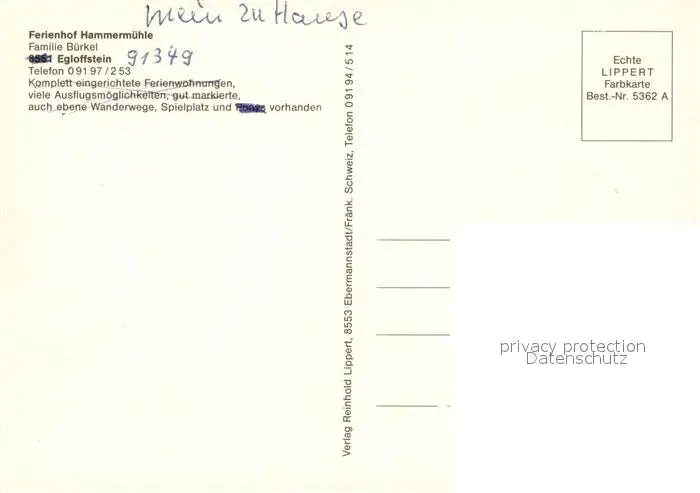 mein zu Hause
Ferienhof Hammermühle
Familie Bürkel
8551 Egloffstein 91349
Telefon 0 91 97 / 2 53
Komplett eingerichtete Ferienwohnungen,
viele Ausflugsmöglichkeiten, gut markierte,
auch ebene Wanderwege, Spielplatz und Ponys vorhanden
Verlag Reinhold Lippert, 8553 Ebermannstadt/Fränk. Schweiz, Telefon 0 91 94 / 5 14
Echte
LIPPERT
Farbkarte
Best.-Nr. 5362 A
privacy protection
Datenschutz